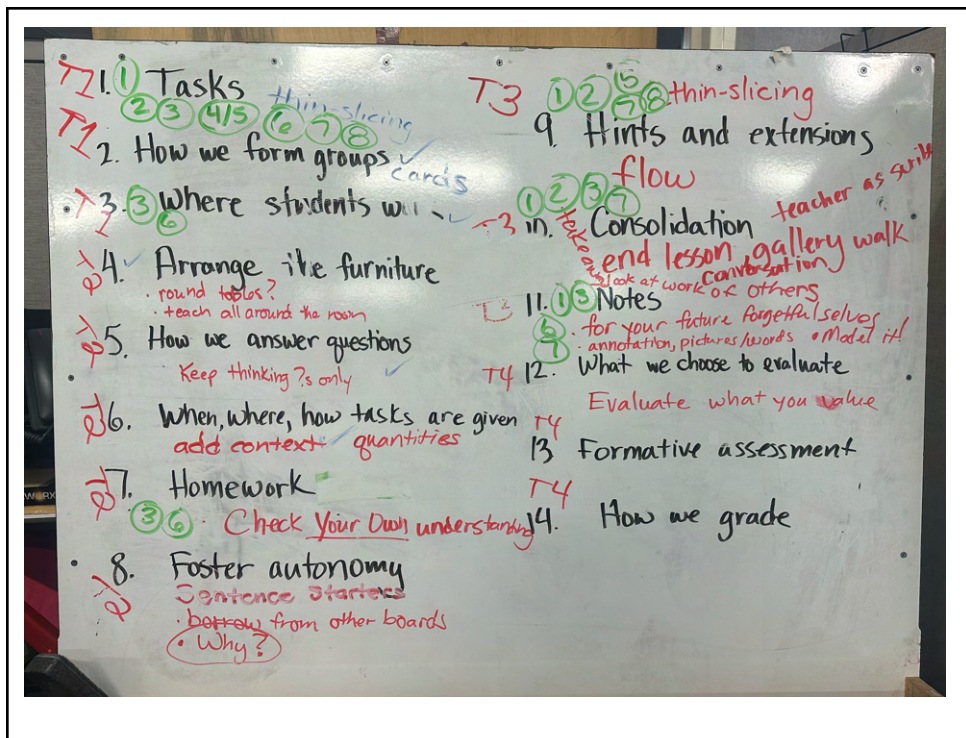 T1 1. ① Tasks
② ③ ④/5 ⑥ ⑦ ⑧ thin-slicing
T1 2. How we form groups ✓ cards
T1 3. ③ Where students ✓
⑥
T2 4. ✓ Arrange the furniture
· round tables?
· teach all around the room
T2 5. How we answer questions
Keep thinking ?s only ✓
T2 6. When, where, how tasks are given
add context ✓ quantities
T2 7. Homework
③ ⑥ · Check Your Own understanding
T2 8. Foster autonomy
Sentence starters
· borrow from other boards
· Why?
T3 ① ② ⑦ ⑧ thin-slicing
9. Hints and extensions
flow
① ② ③ ⑦
T3 10. Consolidation teacher as scribe
end lesson, gallery walk
conversation
look at work of others
T3 11. ① ③ Notes
· for your future forgetful selves
· annotation, pictures/words • Model it!
T4 12. What we choose to evaluate
Evaluate what you value
T4
13 Formative assessment
T4
14. How we grade
WORX